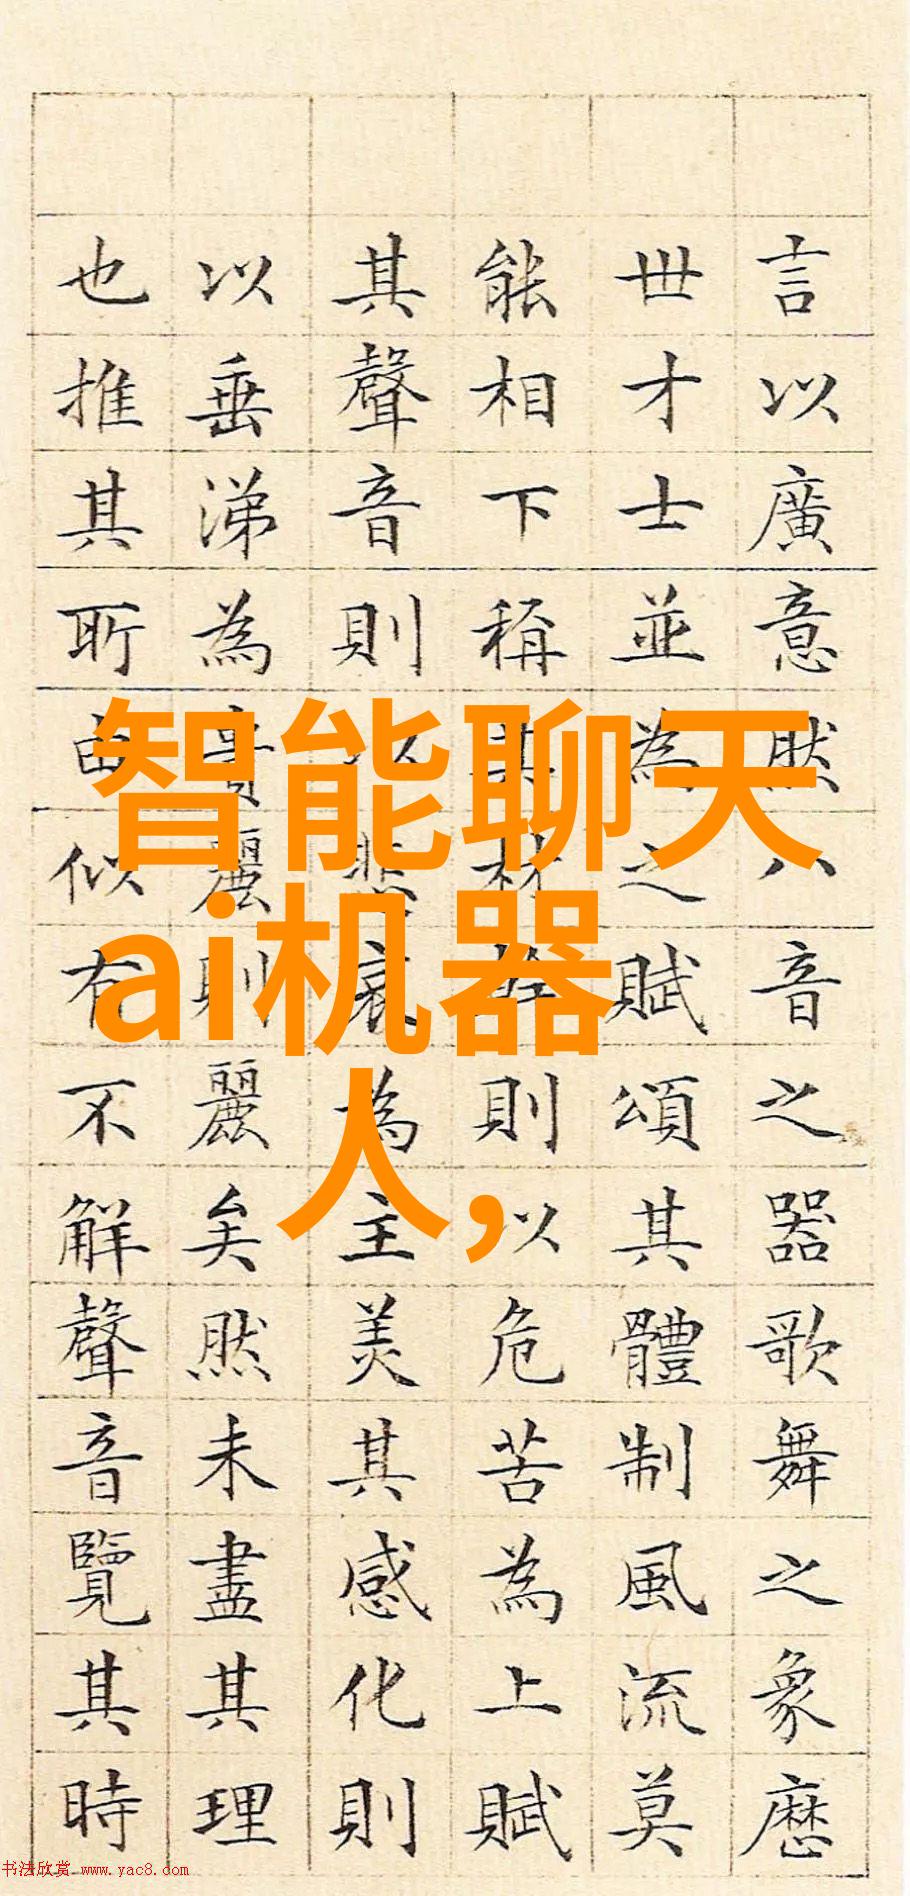 言以廣意然八音之器歌舞之象歷
世才士並為之賦頌其體制風流莫
能相下稱其材幹則以危苦為上賦
其聲音則以悲哀為主美其感化則
以垂涕為貴麗則麗矣然未盡其理
也推其所由似有不解聲音覽其時
智能聊天
ai机器
人,
书法欣赏 www.yac8.com